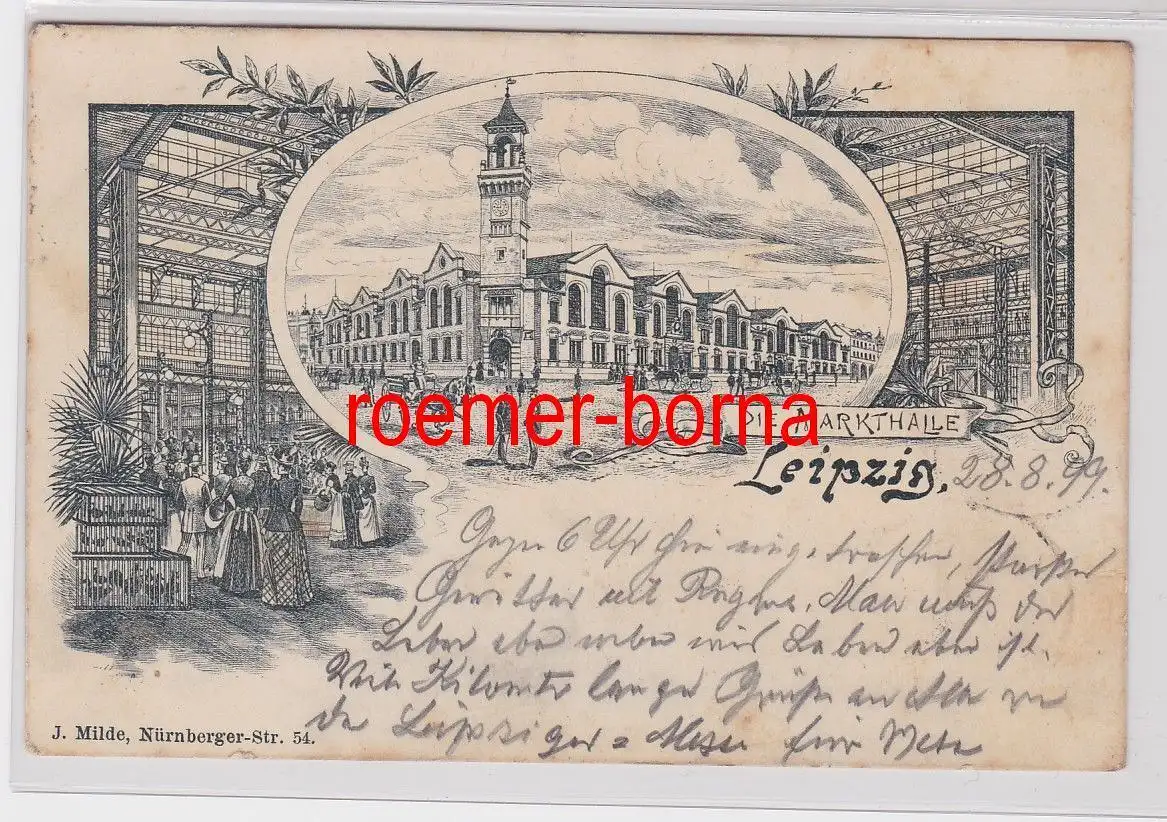 roemer-borna
DIE MARKTHALLE
Leipzig, 28.8.99.
Gegen 6 Uhr hier eingetroffen, starker
Gewitter mit Regen. Man muß das
Leben eben nehmen wie Leben eben ist.
Viele Kilometer lange Grüße an Alle
Leipziger = Messe für
J. Milde, Nürnberger-Str. 54.